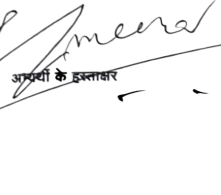 meena
अभ्यर्थी के हस्ताक्षर